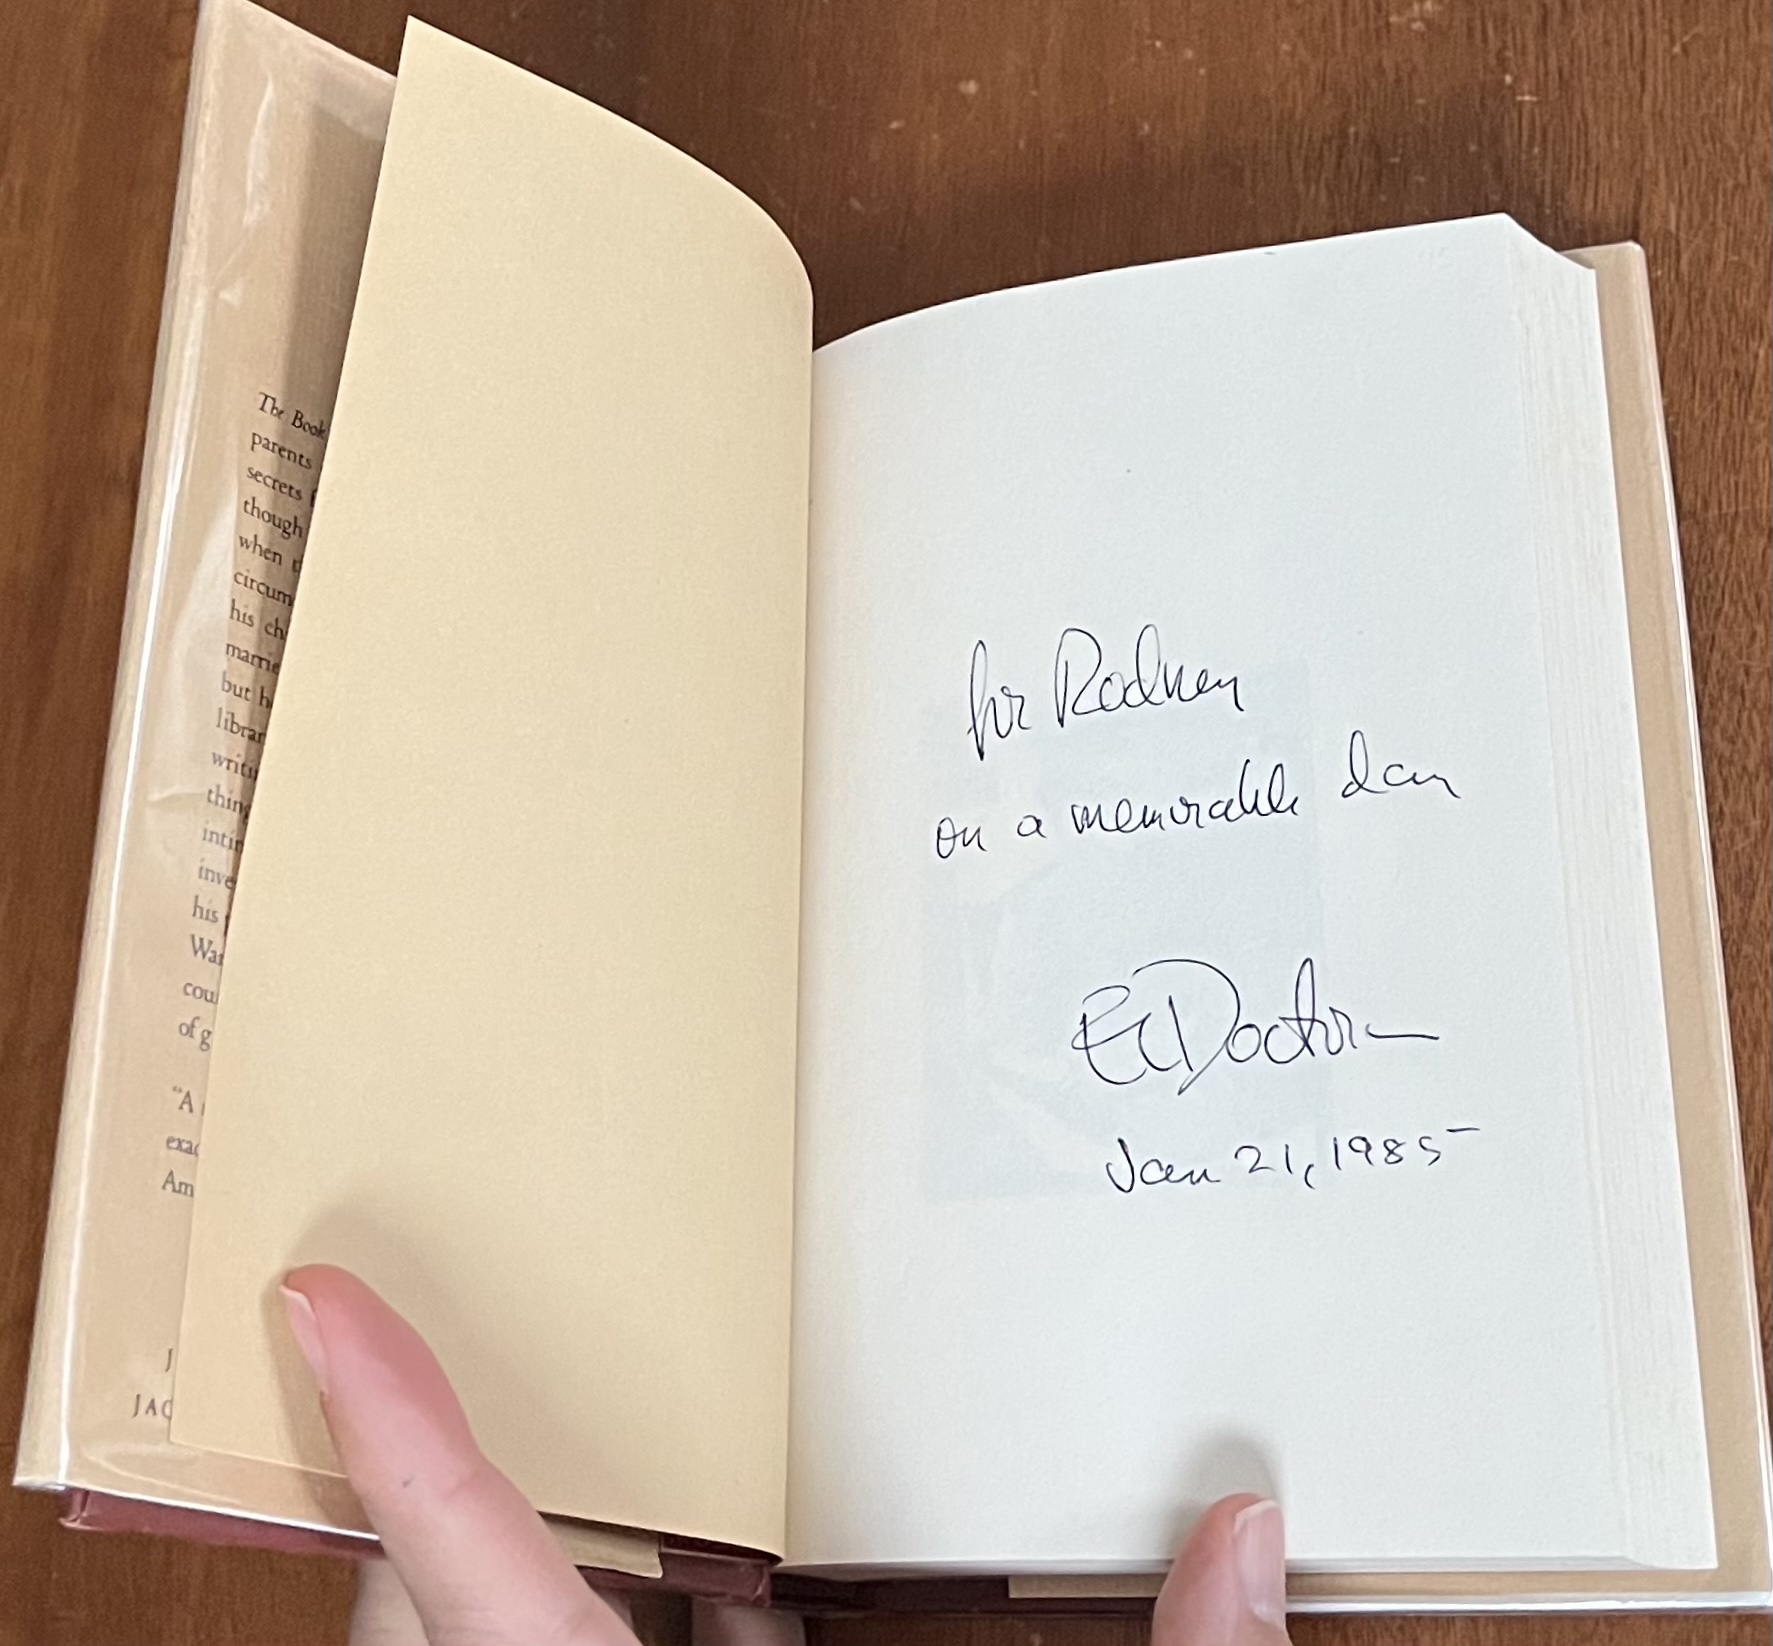 The Book
parents
secrets
though
when
circum
his ch
marrie
but h
librar
writi
thing
intir
inve
his
War
cou
of g
"A
exac
Am
J
JAC
for Rodney
on a memorable day
EL Doctorow
Jan 21, 1985